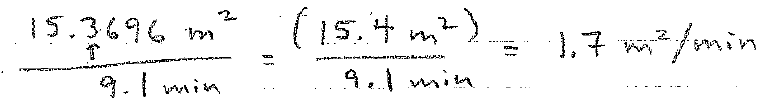 15.3696 m² / 9.1 min = (15.4 m²) / 9.1 min = 1.7 m²/min